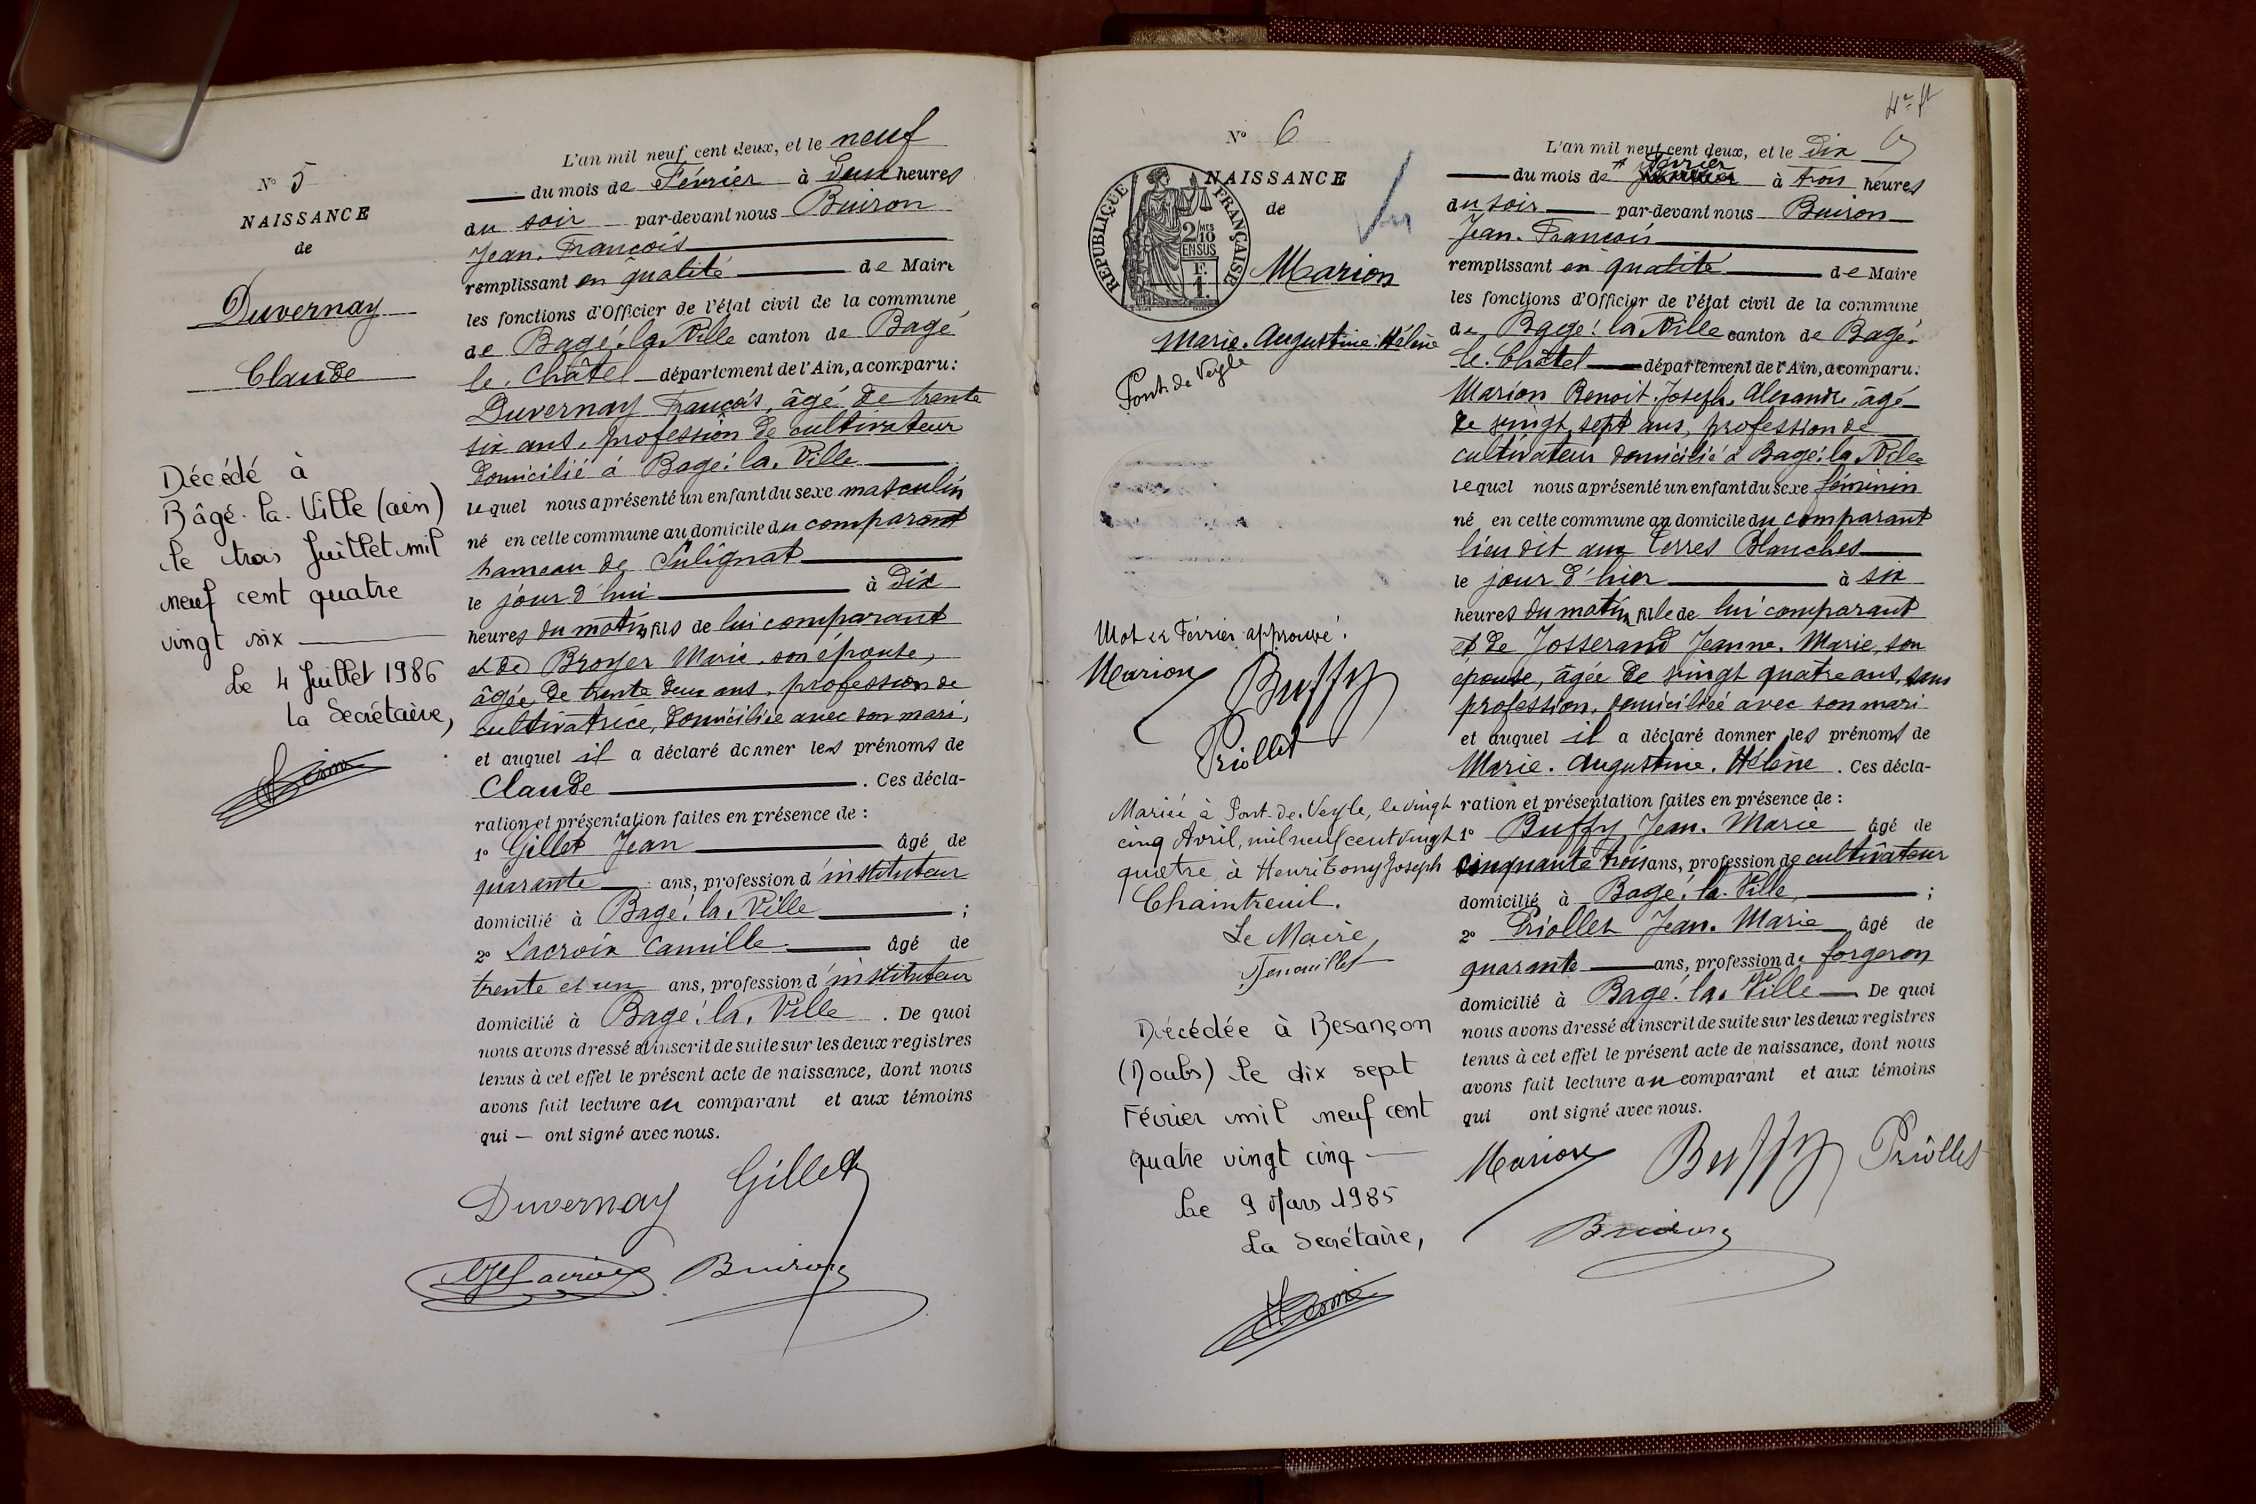 N° 5
NAISSANCE
de
Duvernay
Claude
Décédé à
Bâgé-la-Ville (ain)
le trois Juillet mil
neuf cent quatre
vingt six
Le 4 Juillet 1986
La Secrétaire,
L'an mil neuf cent deux, et le neuf
du mois de Février à deux heures
du soir par-devant nous Buiron
Jean. François
remplissant en qualité de Maire
les fonctions d'Officier de l'état civil de la commune
de Bagé. la. Ville canton de Bagé
le. Châtel département de l'Ain, a comparu:
Duvernay François, âgé de trente
six ans, profession de cultivateur
domicilié à Bagé. la. Ville
lequel nous a présenté un enfant du sexe masculin
né en cette commune au domicile du comparant
hameau de Sulignat
le jour d'hui à dix
heures du matin, fils de lui comparant
et de Broyer Marie, son épouse,
âgée de trente deux ans, profession de
cultivatrice, domiciliée avec son mari,
et auquel il a déclaré donner les prénoms de
Claude . Ces décla-
ration et présentation faites en présence de :
1° Gillet Jean âgé de
quarante ans, profession d'instituteur
domicilié à Bagé. la. Ville ;
2° Lacroix Camille âgé de
trente et un ans, profession d'instituteur
domicilié à Bagé. la. Ville . De quoi
nous avons dressé et inscrit de suite sur les deux registres
tenus à cet effet le présent acte de naissance, dont nous
avons fait lecture au comparant et aux témoins
qui — ont signé avec nous.
Duvernay Gillet
Lacroix Buiron
N° 6
NAISSANCE
de
RÉPUBLIQUE FRANÇAISE
2/10 EN SUS
Marion
Marie. Augustine. Hélène
Pont-de-Veyle
Mot de Février approuvé.
Marion Buffy
Priollet
Mariée à Pont-de-Veyle, le vingt
cinq Avril, mil neuf cent vingt
quatre, à Henri Tony Joseph
Chaintreuil.
Le Maire,
Décédée à Besançon
(Doubs) le dix sept
Février mil neuf cent
quatre vingt cinq
Le 9 Mars 1985
La Secrétaire,
L'an mil neuf cent deux, et le dix
du mois de Février à trois heures
du soir par-devant nous Buiron
Jean. François
remplissant en qualité de Maire
les fonctions d'Officier de l'état civil de la commune
de Bagé. la. Ville canton de Bagé.
le. Châtel département de l'Ain, a comparu:
Marion Benoit. Joseph. Alexandre, âgé
de vingt sept ans, profession de
cultivateur domicilié à Bagé. la. Ville
lequel nous a présenté un enfant du sexe féminin
né en cette commune au domicile du comparant
lieu dit aux Terres Blanches
le jour d'hier à six
heures du matin, fille de lui comparant
et de Josserand Jeanne. Marie, son
épouse, âgée de vingt quatre ans, sans
profession, domiciliée avec son mari
et auquel il a déclaré donner les prénoms de
Marie. Augustine. Hélène . Ces décla-
ration et présentation faites en présence de :
1° Buffy Jean. Marie âgé de
cinquante trois ans, profession de cultivateur
domicilié à Bagé. la. Ville ;
2° Priollet Jean. Marie âgé de
quarante ans, profession de forgeron
domicilié à Bagé. la. Ville De quoi
nous avons dressé et inscrit de suite sur les deux registres
tenus à cet effet le présent acte de naissance, dont nous
avons fait lecture au comparant et aux témoins
qui ont signé avec nous.
Marion Buffy Priollet
Buiron